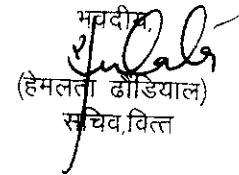 भवदीय,
(हेमलता ढौंडियाल)
सचिव,वित्त